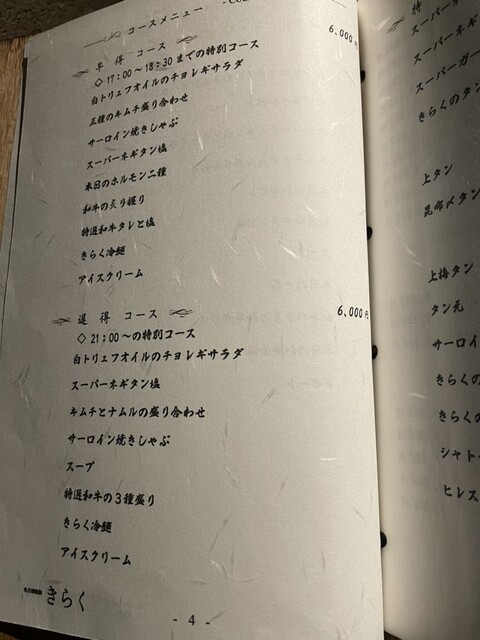 コースメニュー
早得 コース 6,000円
◇17:00〜18:30までの特別コース
白トリュフオイルのチョレギサラダ
三種のキムチ盛り合わせ
サーロイン焼きしゃぶ
スーパーネギタン塩
本日のホルモン二種
和牛の炙り握り
特選和牛タレと塩
きらく冷麺
アイスクリーム
遅得 コース 6,000円
◇21:00〜の特別コース
白トリュフオイルのチョレギサラダ
スーパーネギタン塩
キムチとナムルの盛り合わせ
サーロイン焼きしゃぶ
スープ
特選和牛の3種盛り
きらく冷麺
アイスクリーム
きらく
- 4 -
特
スーパー
スーパーネギ
スーパーガー
きらくのタン
上タン
昆布〆タン
上梅タン
タン元
サーロイ
きらくの
きらくの
シャト
ヒレス